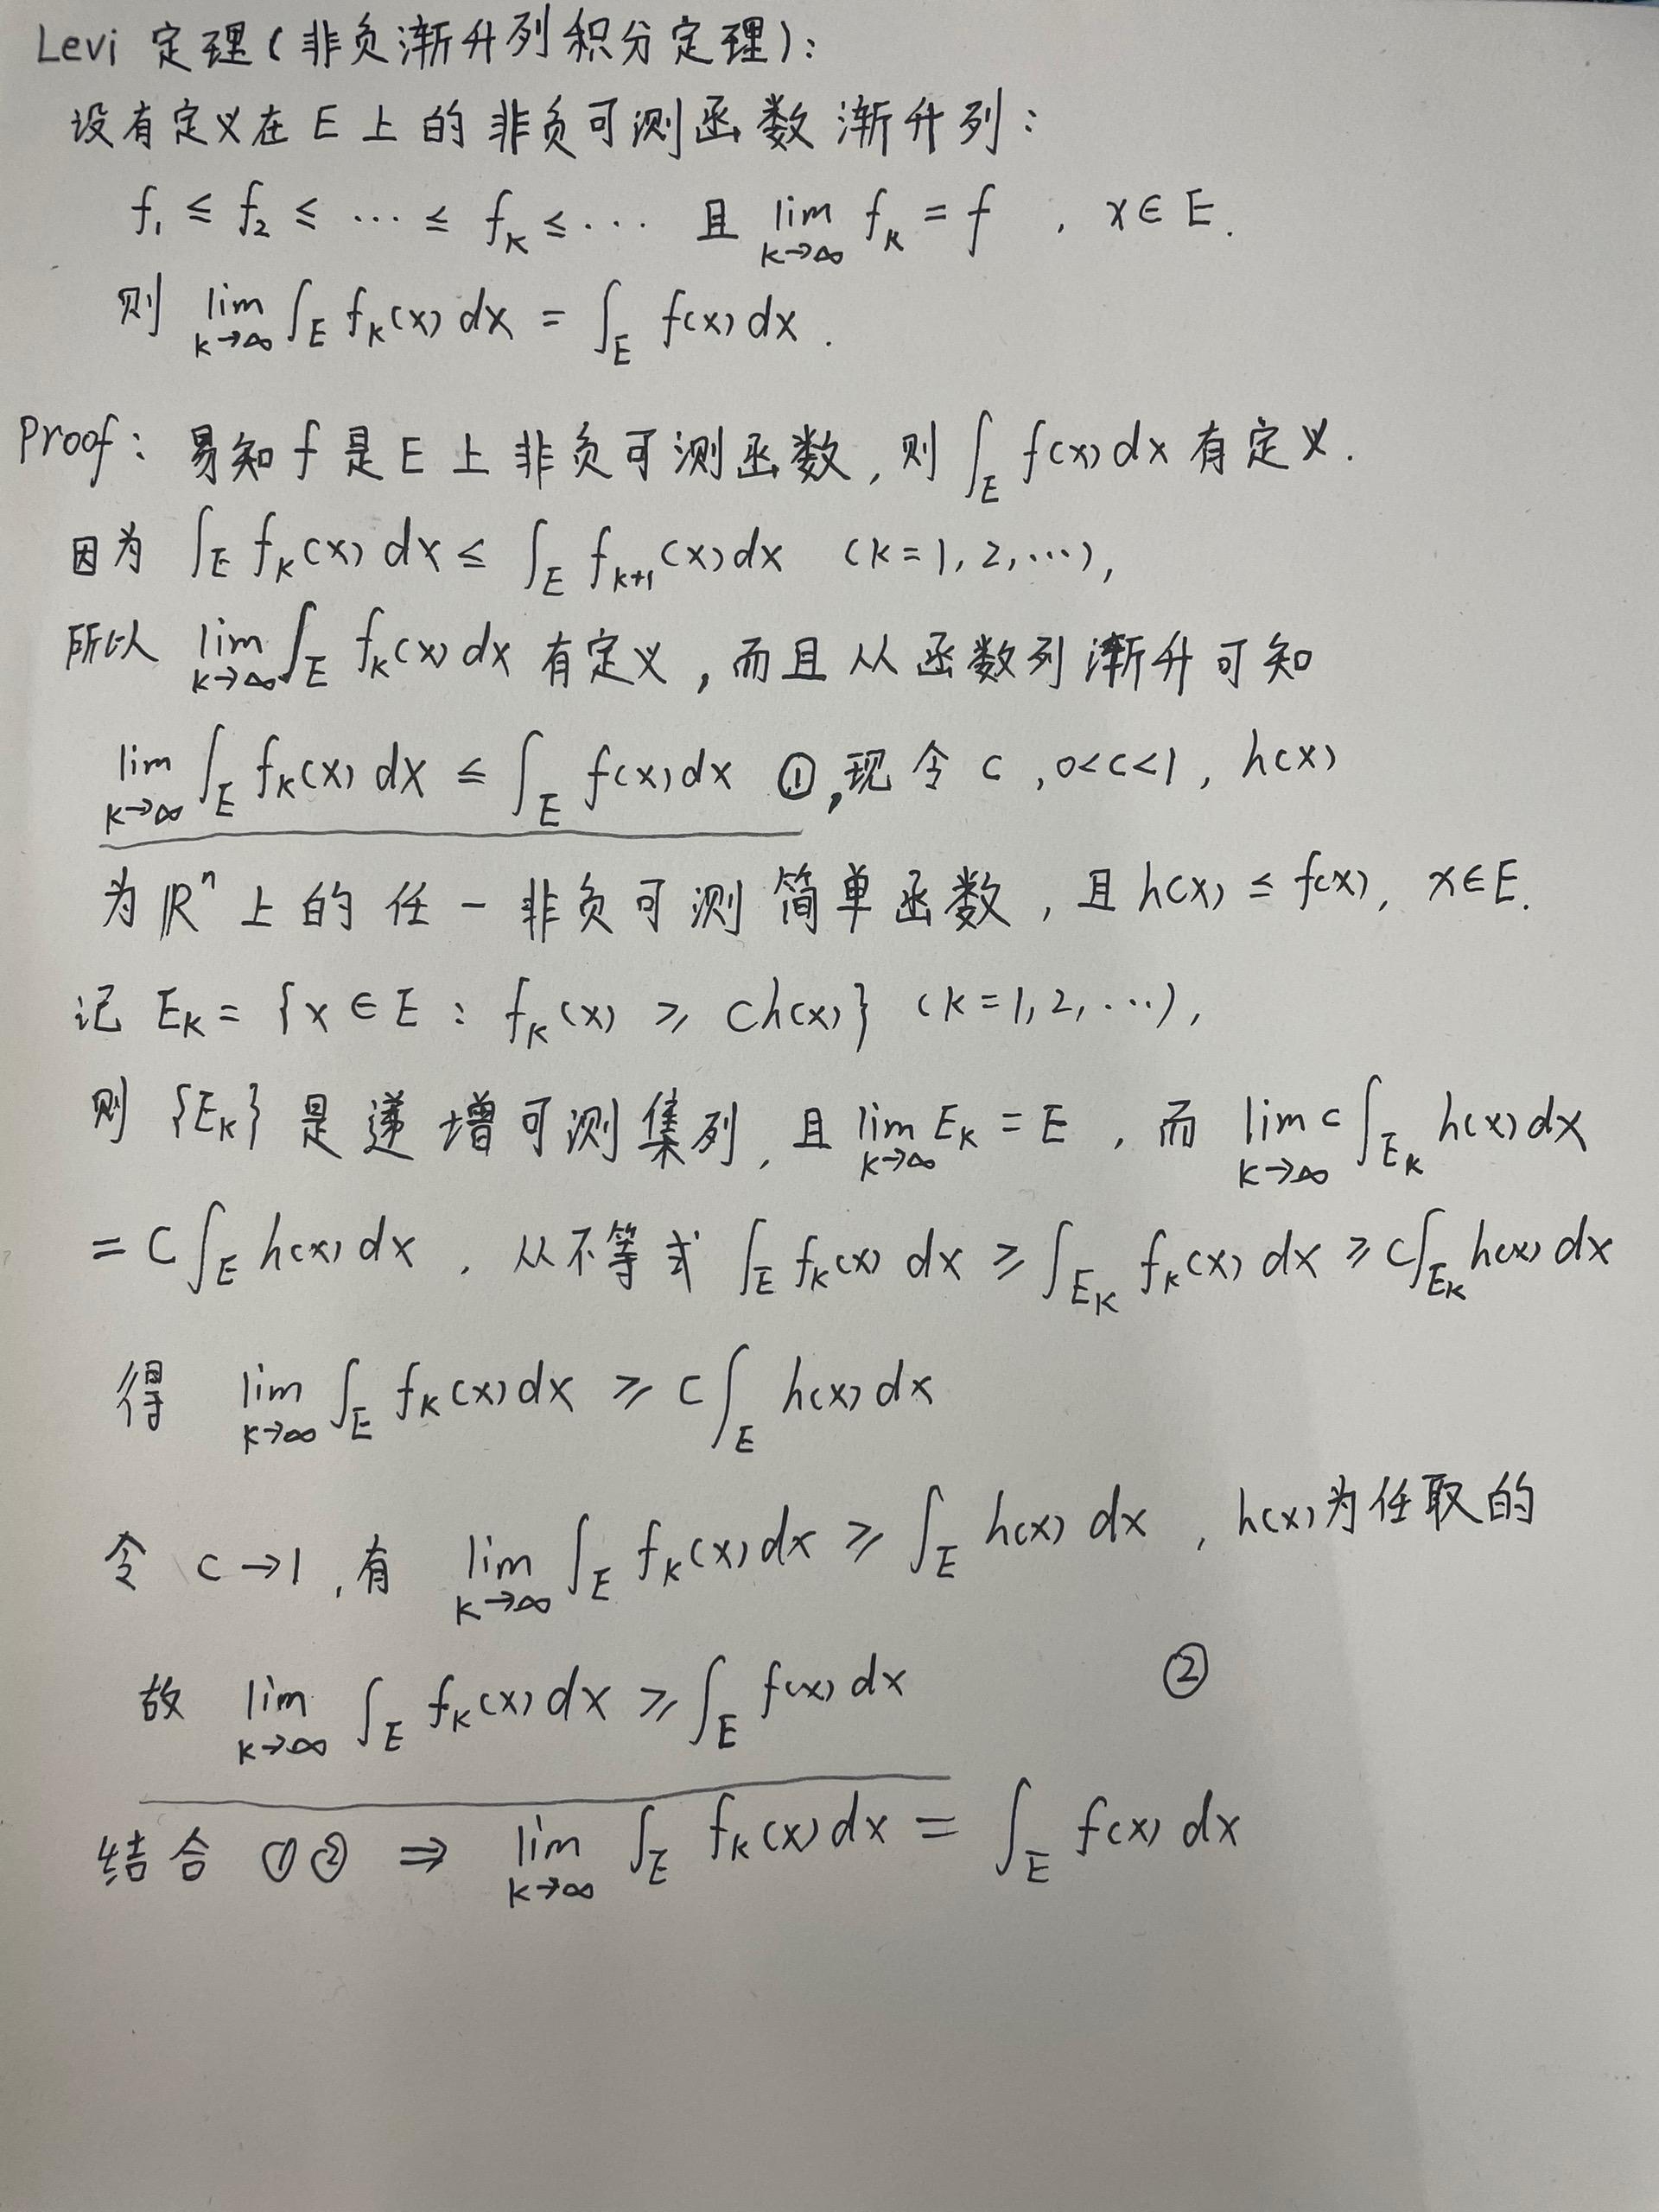 Levi 定理(非负渐升列积分定理):
设有定义在 E 上的非负可测函数渐升列:
f₁ ≤ f₂ ≤ ⋯ ≤ f_k ≤ ⋯ 且 lim_{k→∞} f_k = f , x∈E.
则 lim_{k→∞} ∫_E f_k(x) dx = ∫_E f(x) dx .
Proof: 易知 f 是 E 上非负可测函数, 则 ∫_E f(x) dx 有定义.
因为 ∫_E f_k(x) dx ≤ ∫_E f_{k+1}(x) dx (k=1,2,⋯),
所以 lim_{k→∞} ∫_E f_k(x) dx 有定义, 而且从函数列渐升可知
lim_{k→∞} ∫_E f_k(x) dx ≤ ∫_E f(x) dx ①, 现令 c , 0<c<1, h(x)
为 ℝⁿ 上的任一非负可测简单函数, 且 h(x) ≤ f(x), x∈E.
记 E_k = {x∈E : f_k(x) ≥ ch(x)} (k=1,2,⋯),
则 {E_k} 是递增可测集列, 且 lim_{k→∞} E_k = E , 而 lim_{k→∞} c ∫_{E_k} h(x) dx
= c ∫_E h(x) dx , 从不等式 ∫_E f_k(x) dx ≥ ∫_{E_k} f_k(x) dx ≥ c∫_{E_k} h(x) dx
得 lim_{k→∞} ∫_E f_k(x) dx ≥ c ∫_E h(x) dx
令 c→1, 有 lim_{k→∞} ∫_E f_k(x) dx ≥ ∫_E h(x) dx , h(x)为任取的
故 lim_{k→∞} ∫_E f_k(x) dx ≥ ∫_E f(x) dx ②
结合 ①② ⇒ lim_{k→∞} ∫_E f_k(x) dx = ∫_E f(x) dx